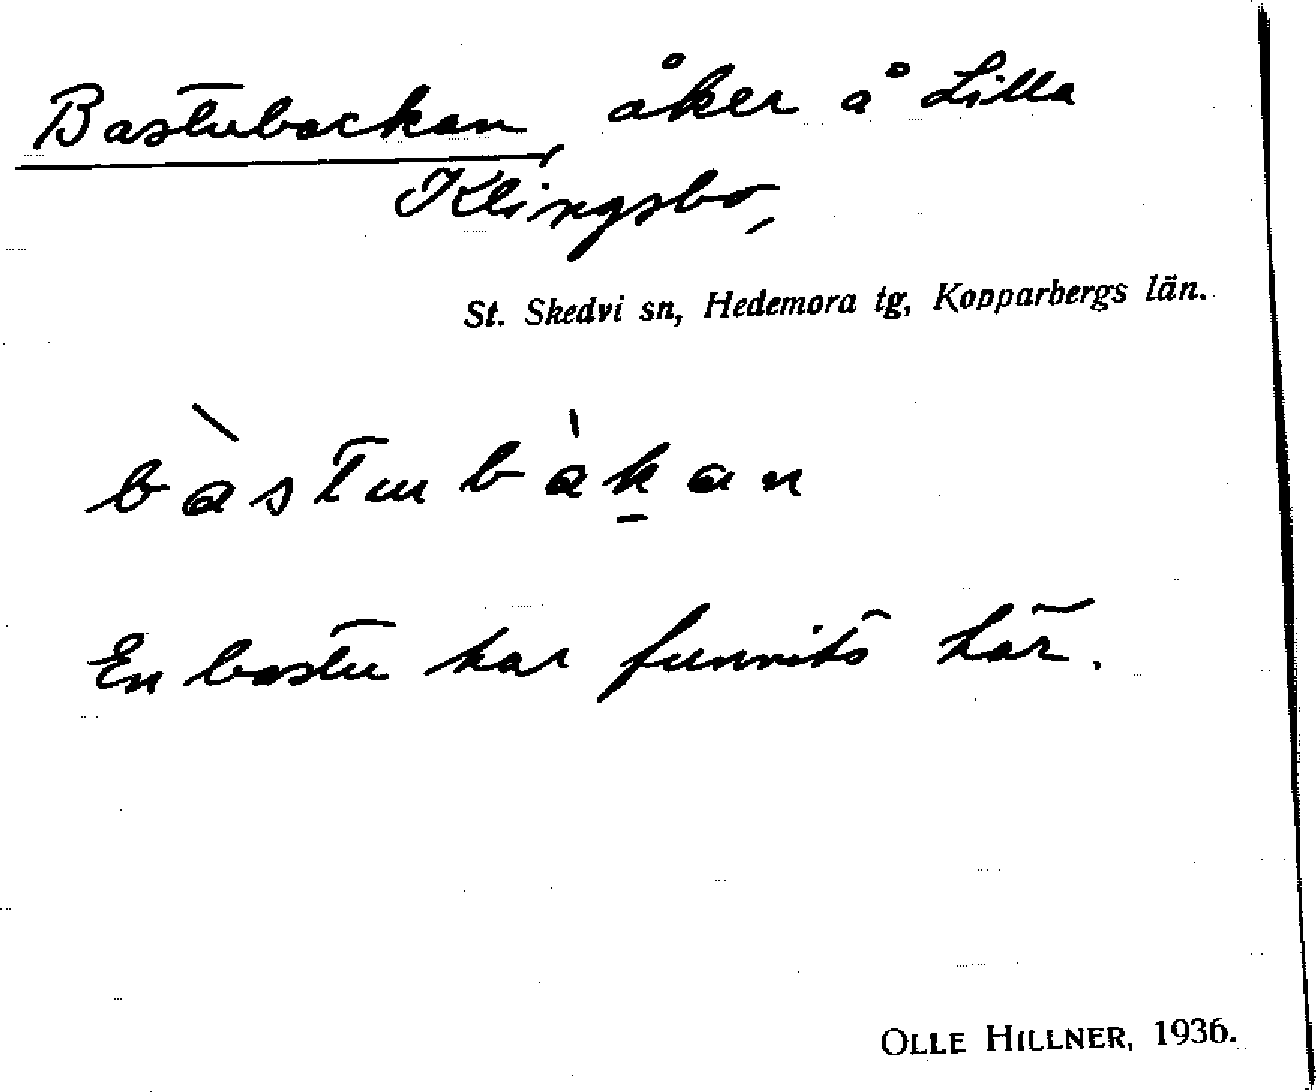 Bastubackan, åker å Lilla
Klingsbo,
St. Skedvi sn, Hedemora tg, Kopparbergs län.
bàstubàk̠an
En bastu har funnits här.
OLLE HILLNER, 1936.